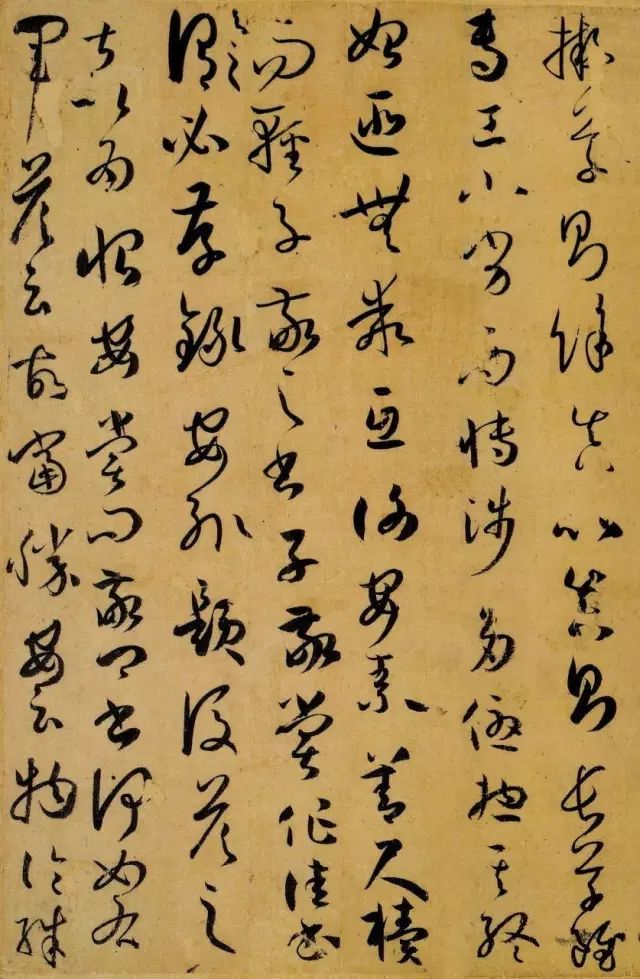 擬草則餘真比真則長草雖
專工小劣而博涉多優揔其終
始匪無乖互謝安素善尺牘
而輕子敬之書子敬嘗作佳書
與之謂必存録安輒題後答之
甚以為恨安嘗問敬卿書何如右
軍答云故當勝安云物論殊